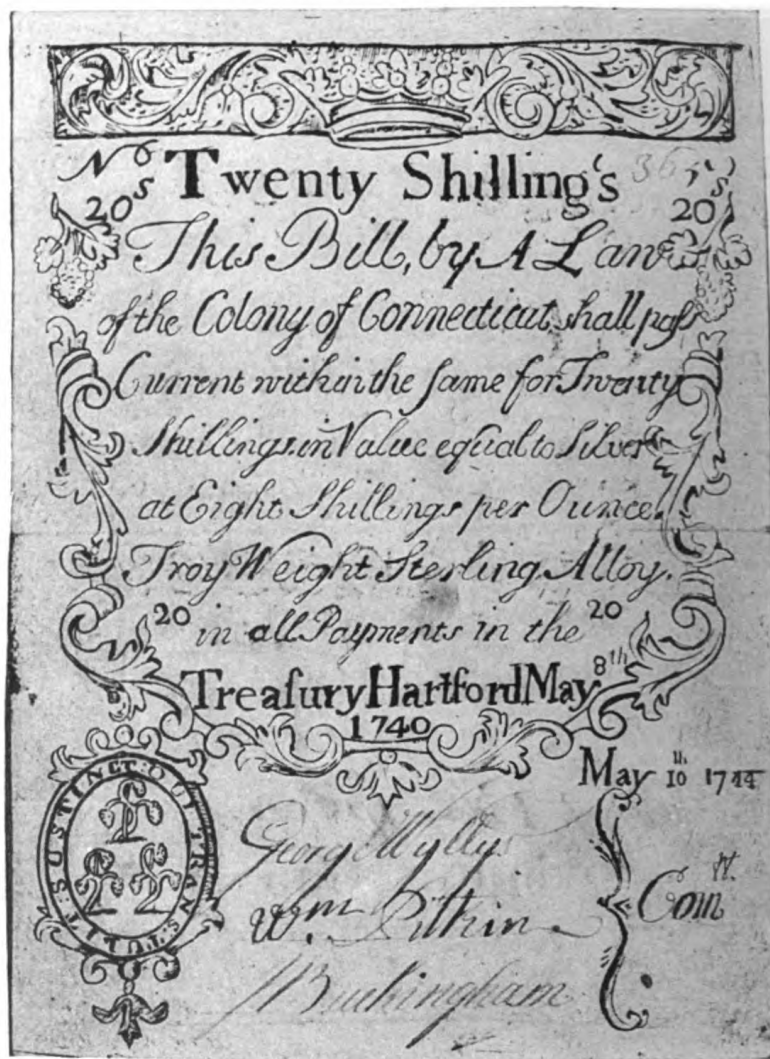 No
Twenty Shilling's
20s 20s
This Bill, by A Law
of the Colony of Connecticut, shall paſs
Current within the same for Twenty
Shillings in Value equal to Silver
at Eight Shillings per Ounce,
Troy Weight Sterling Alloy.
20 in all Payments in the 20
Treaſury Hartford May 8th
1740
May 10th 1744
SUSTINET QUI TRANSTULIT
George Wyllys
Wm. Pitkin
J Buckingham
Comtt.